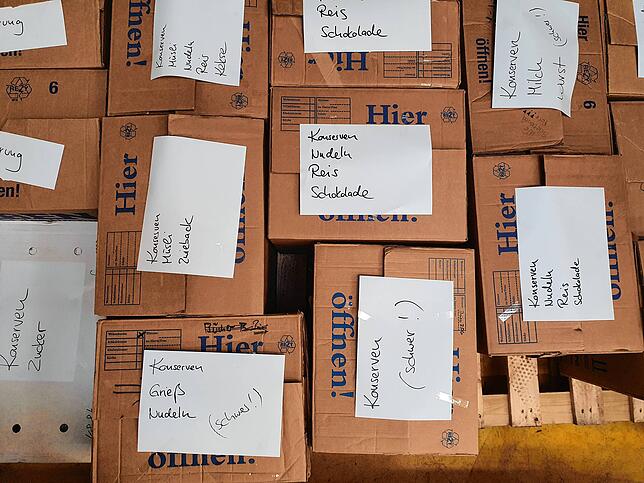 rung
REZY
6
Konserven
Müsli
Nudeln
Reis
Kekse
Reis
Schokolade
Hier
öffnen!
Konserven
Milch
Wurst (schwer!)
Hier
6
rung
en!
Hier
Konserven
Müsli
Zwieback
Hier
Konserven
Nudeln
Reis
Schokolade
öffnen!
Hier
Konserven
Nudeln
Reis
Schokolade
Konserven
Zucker
Hier
Konserven
Grieß
Nudeln
(schwer!)
öffnen!
öffnen!
Konserven
(schwer!)
Hier